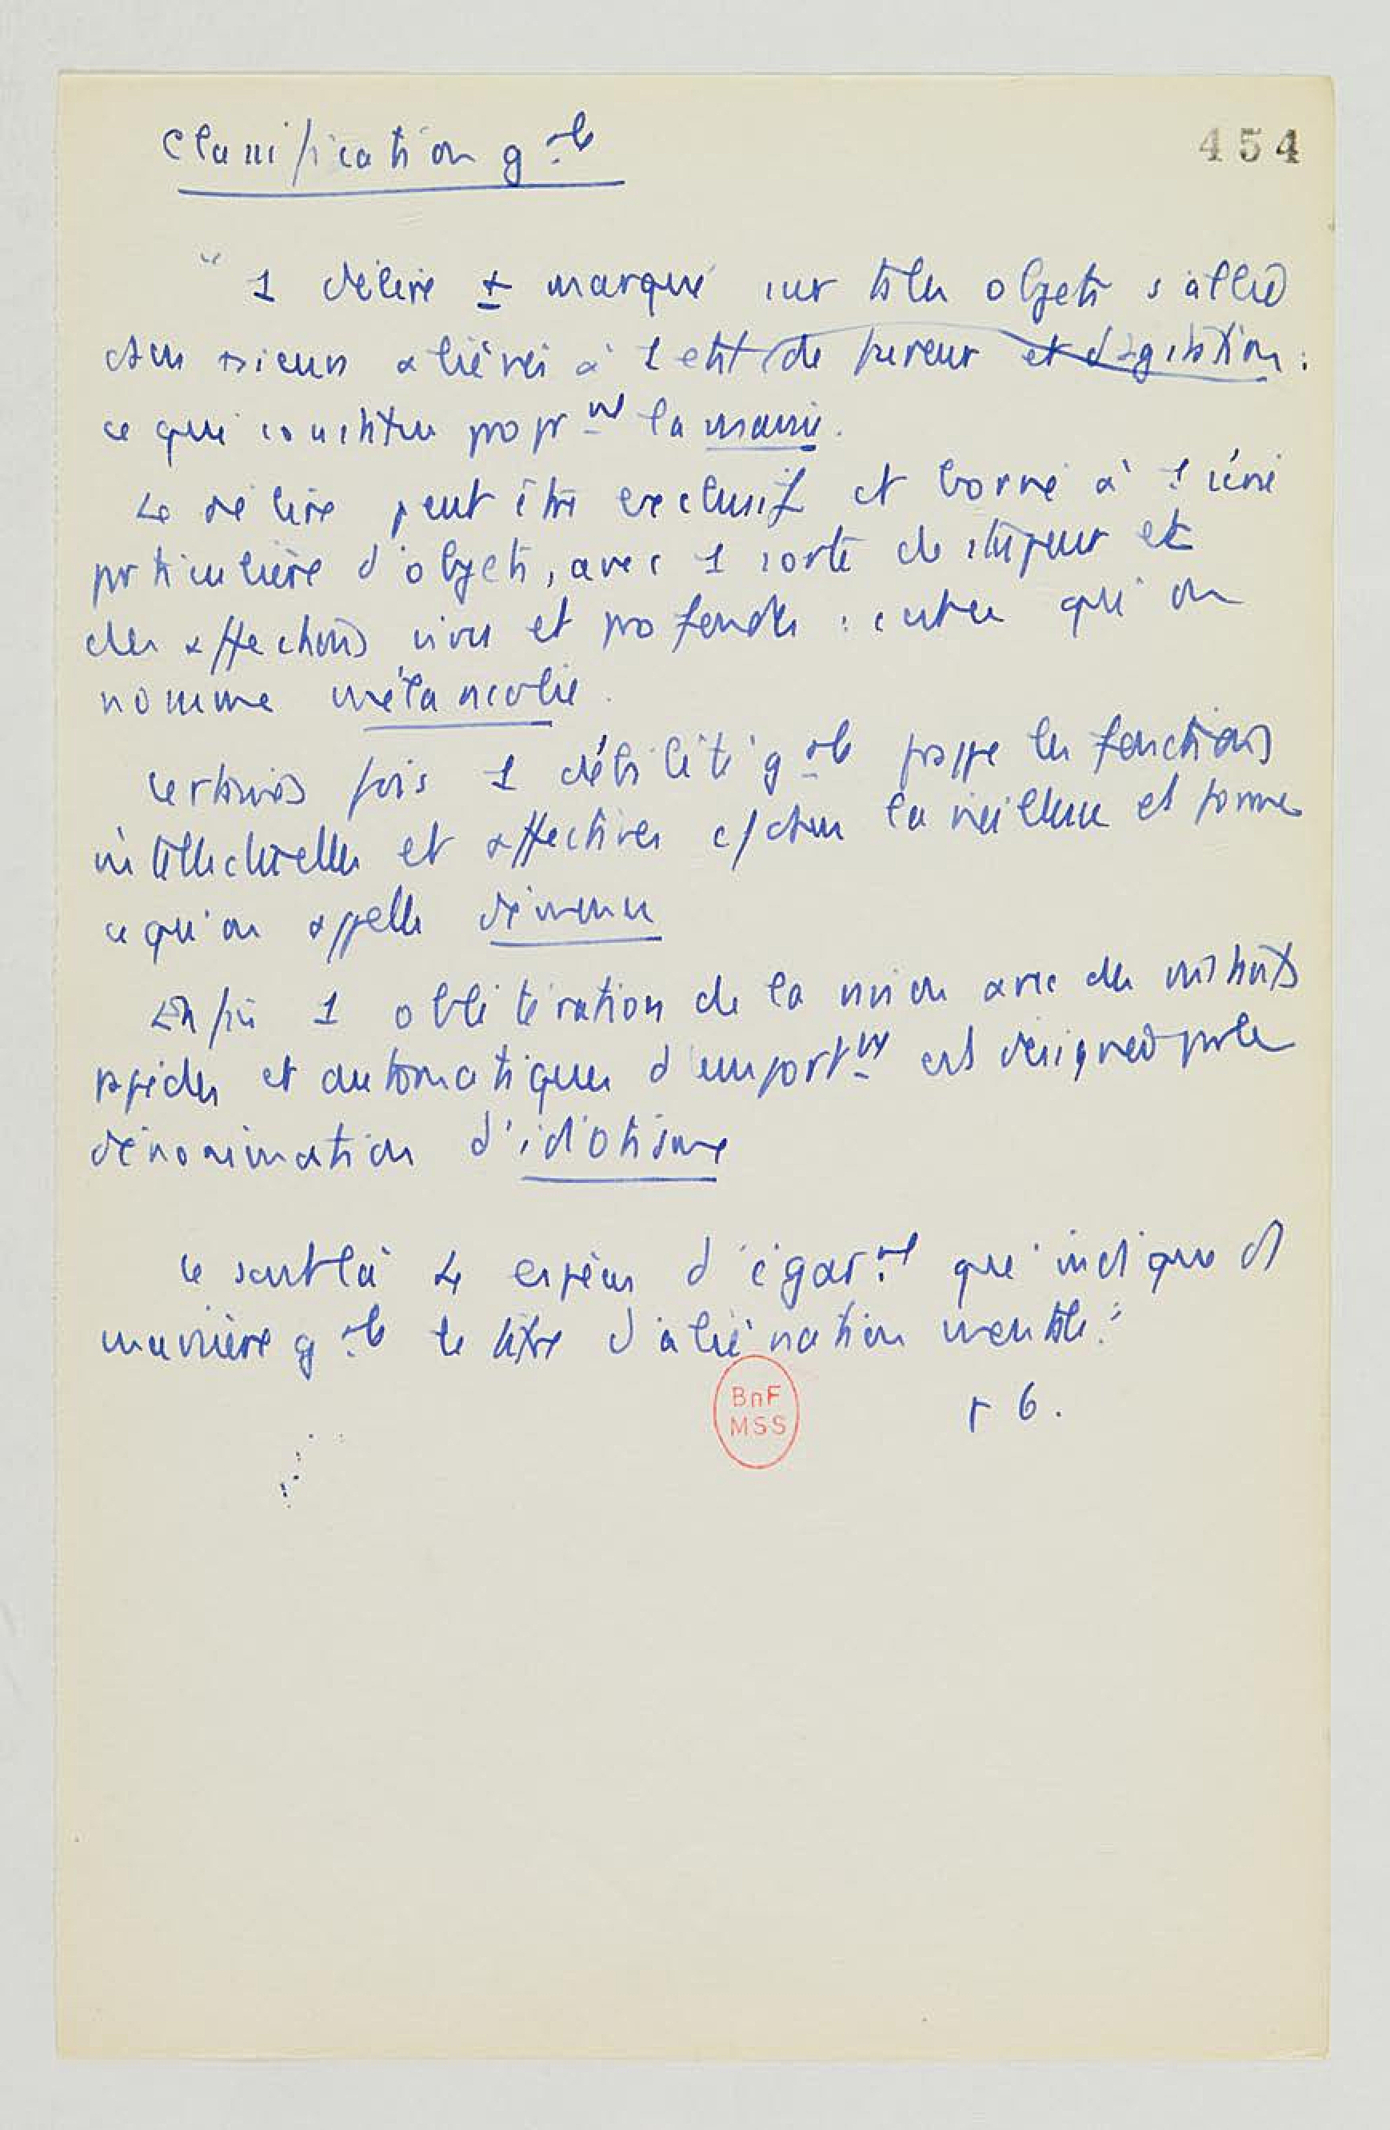 Classification g-le
454
" 1 délire ± marqué sur ts les objets s'allie
chez plusieurs aliénés à 1 état de fureur et d'agitation :
ce qui constitue propr-nt la manie.
Le délire peut être exclusif et borné à 1 série
particulière d'objets, avec 1 sorte de stupeur et
des affections vives et profondes : c'est ce qu'on
nomme mélancolie.
Certaines fois 1 débilité g-ale frappe les fonctions
intellectuelles et affectives c/ dans la vieillesse et forme
ce qu'on appelle démence
Enfin 1 oblitération de la raison avec des instants
rapides et automatiques d'emport-nt est désignée par la
dénomination d'idiotisme
Ce sont là 4 espèces d'égar-nt qu'indique d
manière g-ale le titre d'aliénation mentale."
p 6.
BnF
MSS